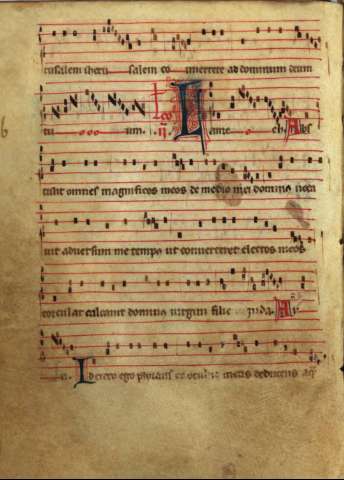 rusalem iheru salem co uuertere ad dominum deum
tu um. L ame ch Abs
tulit omnes magnificos meos de medio mei dominus uoca
uit aduersum me tempus ut contereret electos meos
torcular calcauit dominus uirgini filie iuda. A
in. Idcirco ego plorans et oculus meus deducens aq